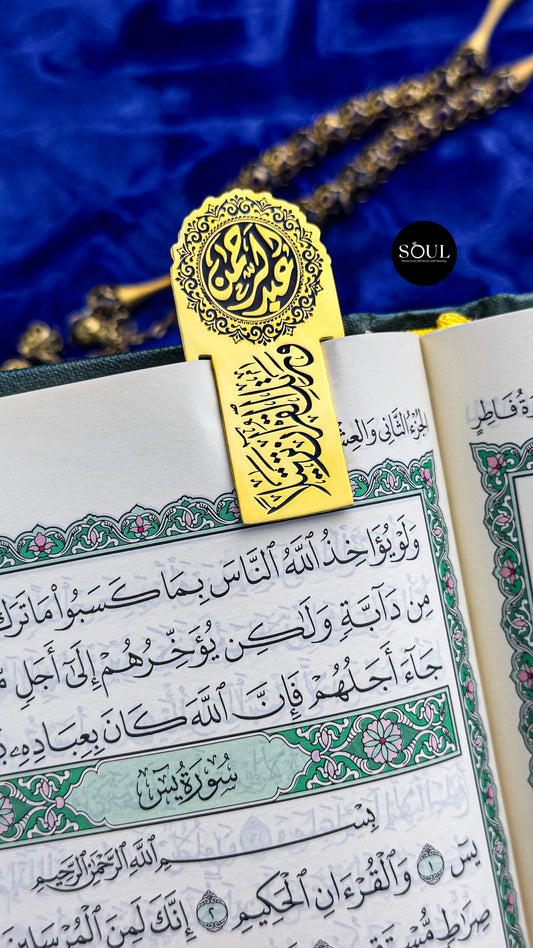 SOUL
عبد الرحمن
ورتل القرآن ترتيلا
الجزء الثاني والعش
رَةُ فَاطِرٍ
وَلَوْ يُؤَاخِذُ ٱللَّهُ ٱلنَّاسَ بِمَا كَسَبُوا۟ مَا تَرَكَ
مِن دَآبَّةٍ وَلَٰكِن يُؤَخِّرُهُمْ إِلَىٰٓ أَجَلٍ
جَآءَ أَجَلُهُمْ فَإِنَّ ٱللَّهَ كَانَ بِعِبَادِهِۦ
سُورَةُ يسٓ
بِسْمِ ٱللَّهِ ٱلرَّحْمَٰنِ ٱلرَّحِيمِ
يسٓ ١ وَٱلْقُرْءَانِ ٱلْحَكِيمِ ٢ إِنَّكَ لَمِنَ ٱلْمُرْسَلِينَ
صِرَٰطٍ مُّسْتَقِ